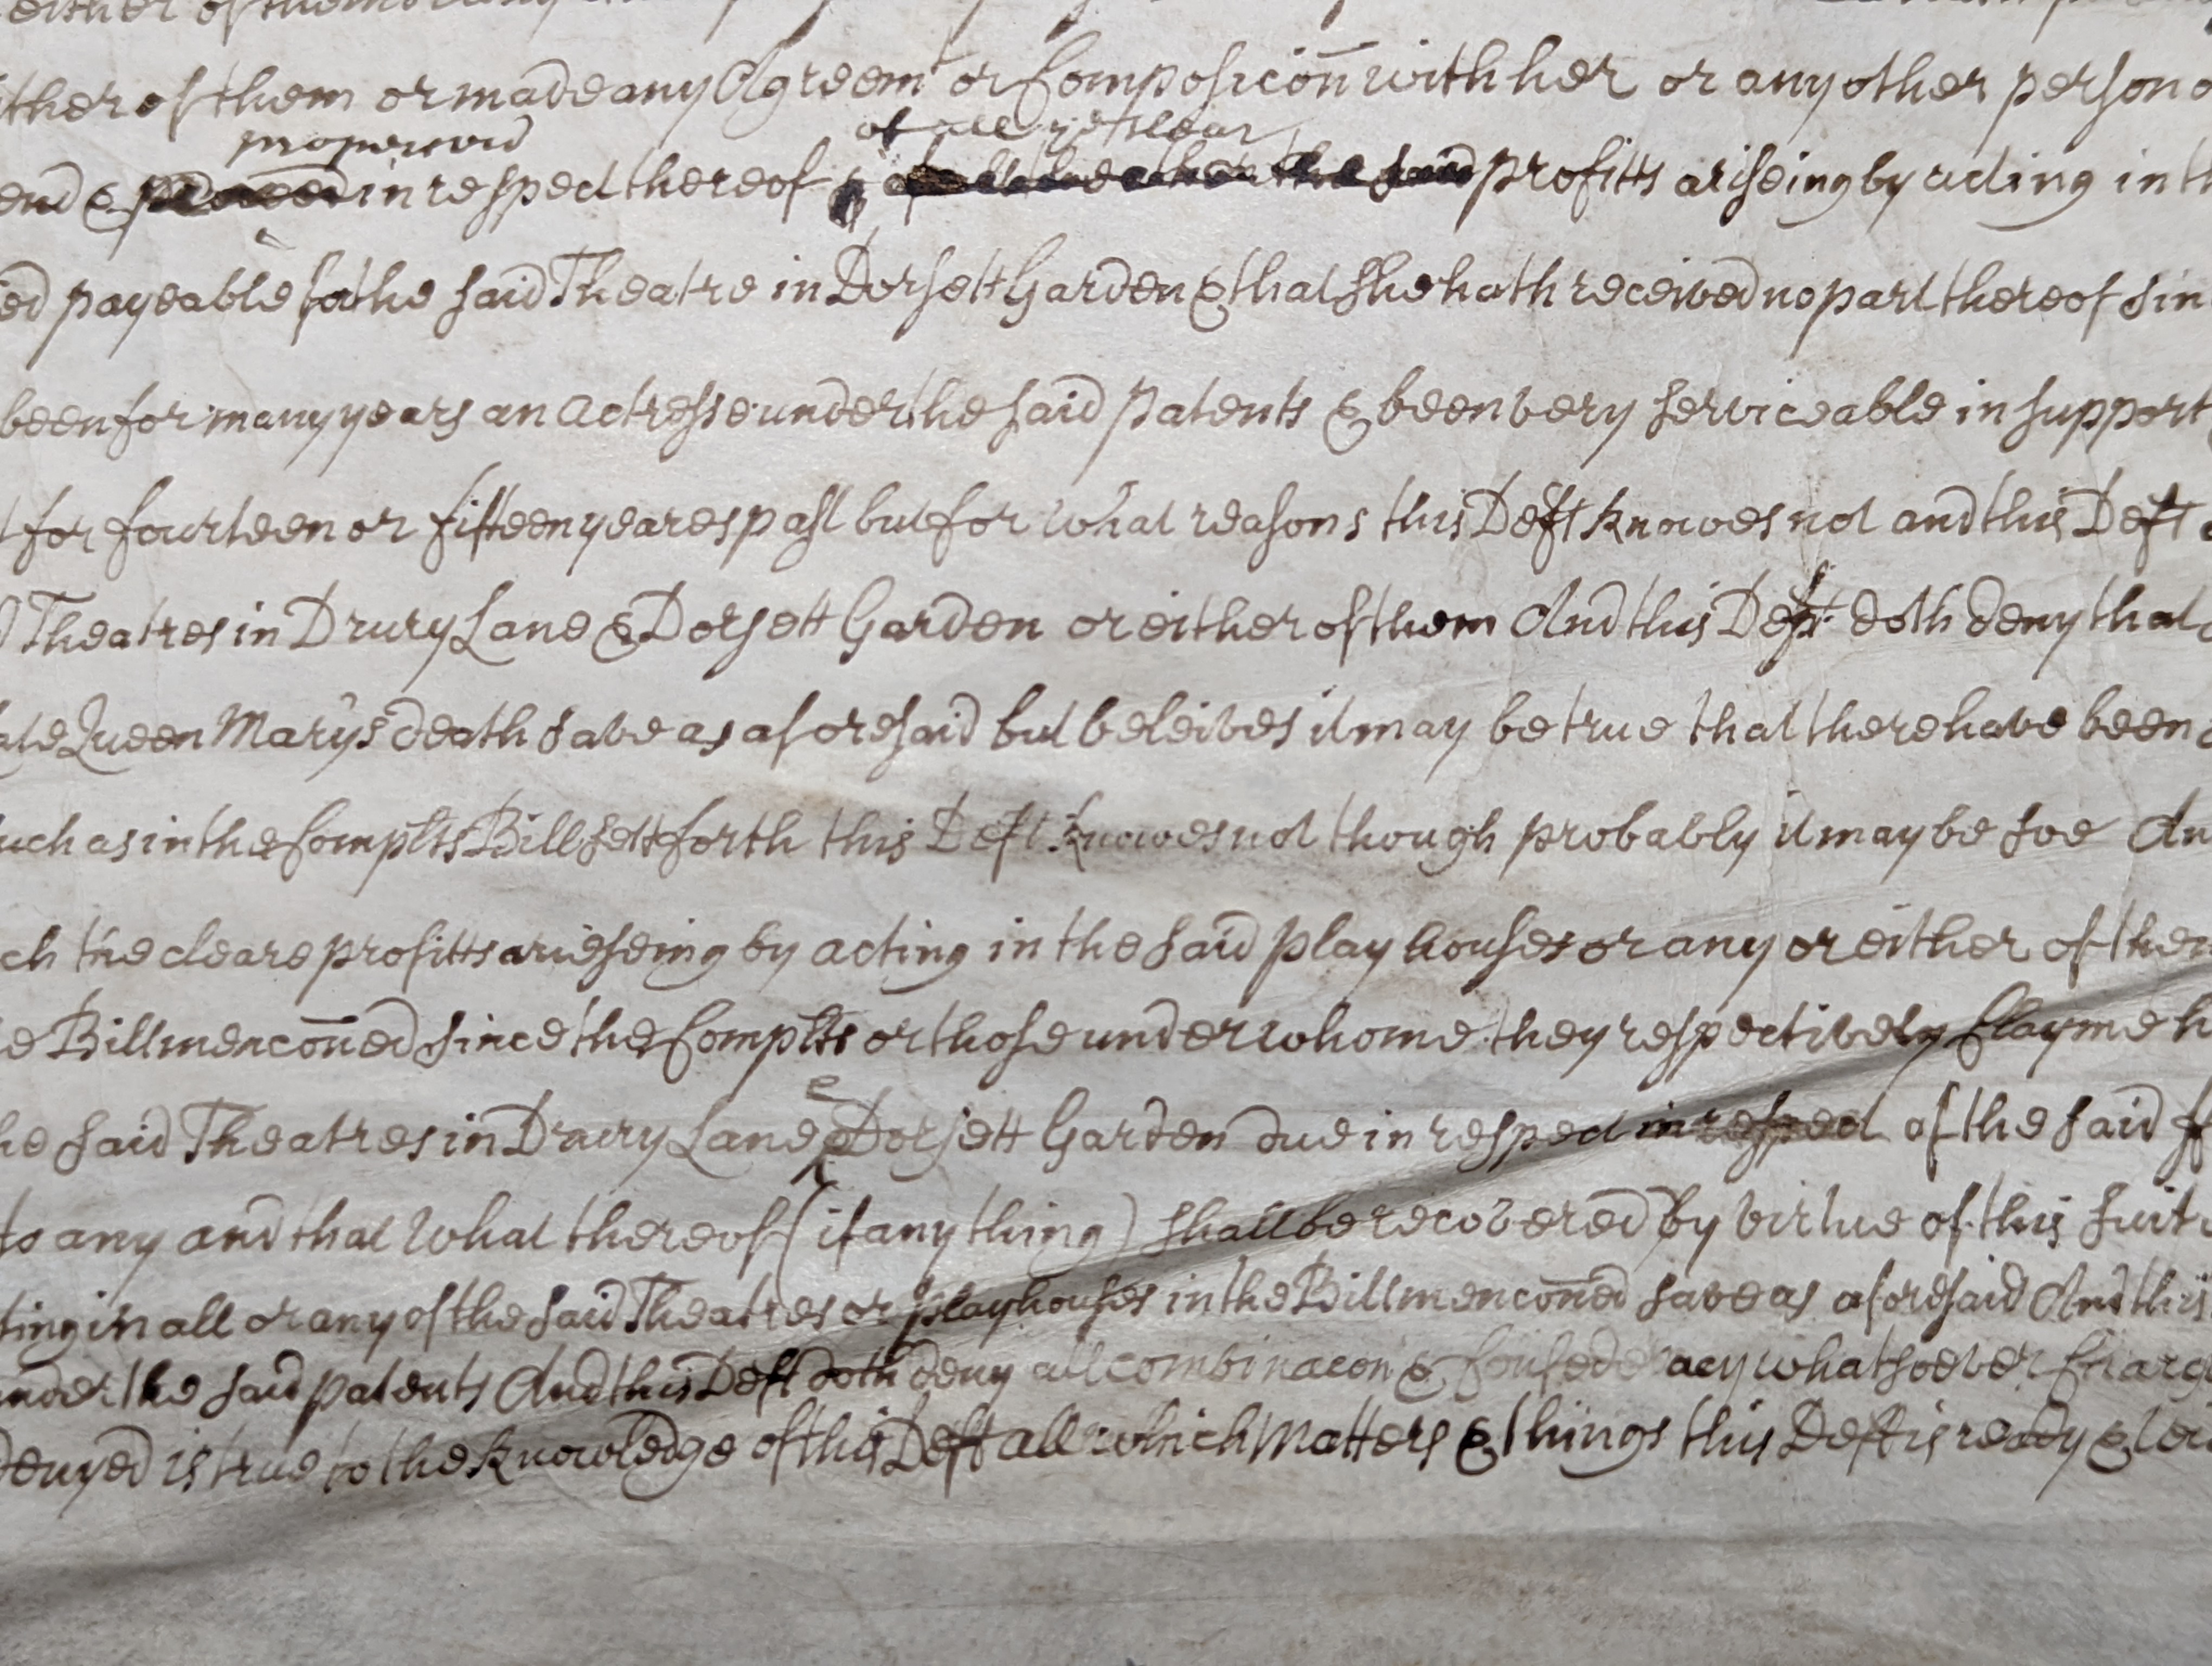 either of them or any
ither of them or made any Agreemt or Composicon with her or any other person o
proporcoñd of all ye clear
end & in respect thereof & profitts ariseing by acting in th
ed payeable for the said Theatre in Dorsett Garden & that she hath received no part thereof sin
been for many years an actresse under the said Patents & been very serviceable in support
t for fourteen or fifteen yeares past but for what reasons this Deft knowes not and this Deft
d Theatres in Drury Lane & Dorsett Garden or either of them And this Deft doth deny that
ate Queen Mary's death save as aforesaid but beleives it may be true that there have been
uch as in the Complts Bill sett forth this Deft knowes not though probably it may be soe An
ch the cleare profitts arieseing by acting in the said play houses or any or either of them
e Bill menconed since the Complts or those under whome they respectively Clayme h
he said Theatres in Drury Lane & Dorsett Garden due in respect in respect of the said
to any and that what thereof (if any thing) shall be recovered by virtue of this suit
ting in all or any of the said Theatres or playhouses in the Bill menconed save as aforesaid And this
nder the said patents And this Deft doth deny all combinacon & Confederacy whatsoever Charge
denyed is true to the knowledge of this Deft all which Matters & things this Deft is ready &